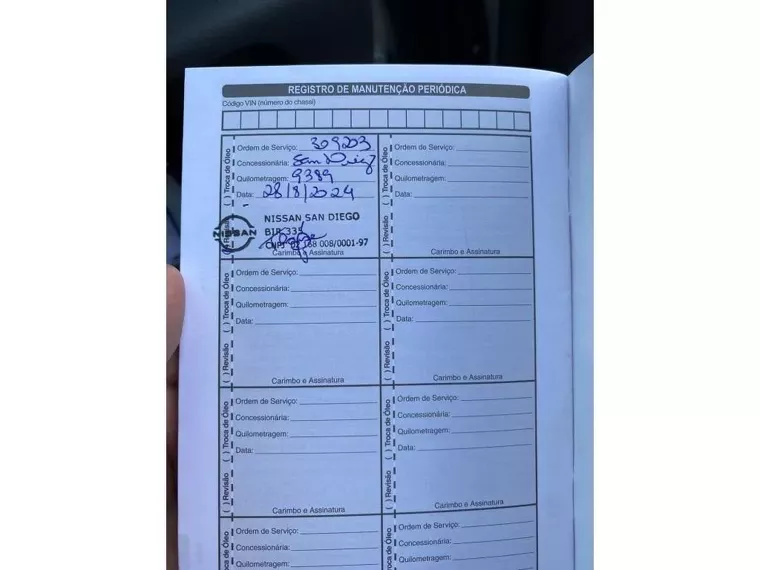 REGISTRO DE MANUTENÇÃO PERIÓDICA
Código VIN (número do chassi)
( ) Troca de Óleo
( ) Revisão
Ordem de Serviço: 309203
Concessionária: San Diego
Quilometragem: 9389
Data: 28/8/2024
NISSAN
NISSAN SAN DIEGO
BIR 335
CNPJ 008/0001-97
Carimbo e Assinatura
( ) Troca de Óleo
( ) Revisão
Ordem de Serviço:
Concessionária:
Quilometragem:
Data:
Carimbo e Assinatura
( ) Troca de Óleo
( ) Revisão
Ordem de Serviço:
Concessionária:
Quilometragem:
Data:
Carimbo e Assinatura
( ) Troca de Óleo
( ) Revisão
Ordem de Serviço:
Concessionária:
Quilometragem:
Data:
Carimbo e Assinatura
( ) Troca de Óleo
( ) Revisão
Ordem de Serviço:
Concessionária:
Quilometragem:
Data:
Carimbo e Assinatura
( ) Troca de Óleo
( ) Revisão
Ordem de Serviço:
Concessionária:
Quilometragem:
Data:
Carimbo e Assinatura
Troca de Óleo
Ordem de Serviço:
Concessionária:
Quilometragem:
Troca de Óleo
Ordem de Serviço:
Concessionária:
Quilometragem: